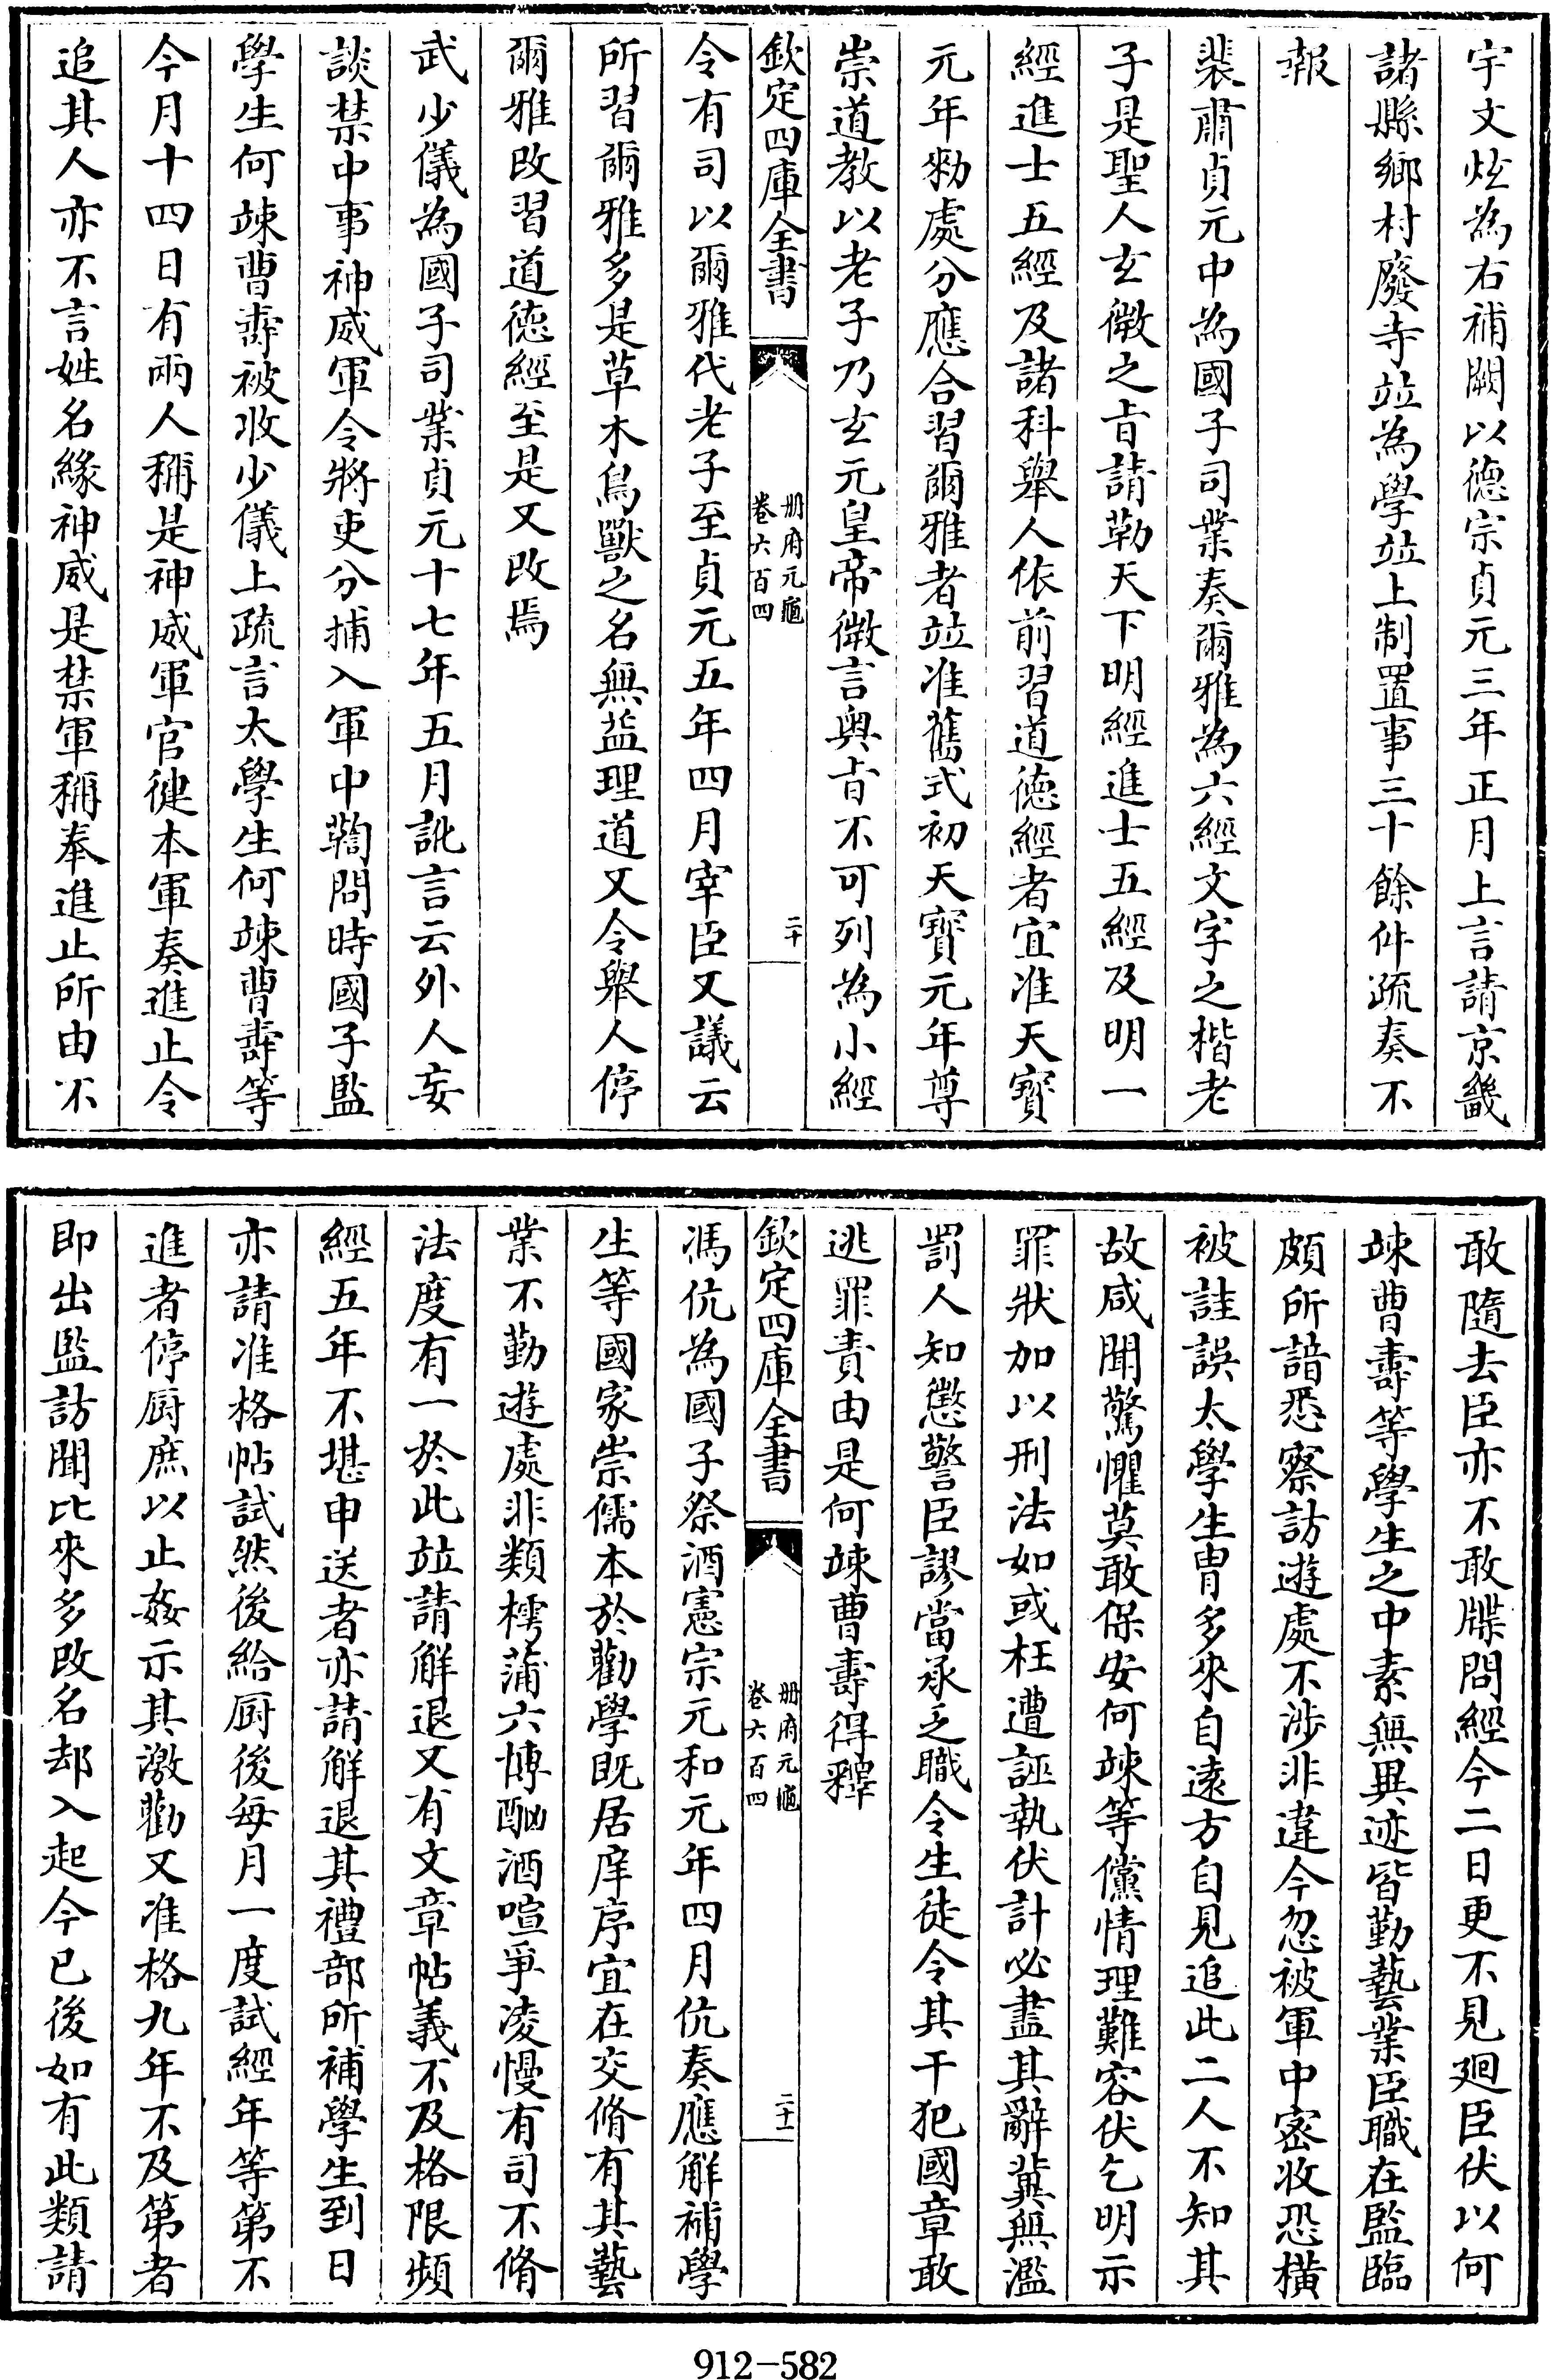 宇文炫為右補闕以德宗貞元三年正月上言請京畿
諸縣鄉村廢寺竝為學竝上制置事三十餘件疏奏不
報
裴肅貞元中為國子司業奏爾雅為六經文字之楷老
子是聖人玄微之旨請勒天下明經進士五經及明一
經進士五經及諸科舉人依前習道德經者宜准天寶
元年勑處分應合習爾雅者竝准舊式初天寶元年尊
崇道教以老子乃玄元皇帝微言奥旨不可列為小經
欽定四庫全書
冊府元龜
卷六百四
二十
令有司以爾雅代老子至貞元五年四月宰臣又議云
所習爾雅多是草木鳥獸之名無益理道又令舉人停
爾雅改習道德經至是又改焉
武少儀為國子司業貞元十七年五月訛言云外人妄
談禁中事神威軍令將吏分捕入軍中鞫問時國子監
學生何竦曹壽被收少儀上疏言太學生何竦曹壽等
今月十四日有兩人稱是神威軍官徤本軍奏進止令
追其人亦不言姓名緣神威是禁軍稱奉進止所由不
敢隨去臣亦不敢牒問經今二日更不見廻臣伏以何
竦曹壽等學生之中素無異迹皆勤藝業臣職在監臨
頗所諳悉察訪遊處不涉非違今忽被軍中宻收恐横
被詿誤太學生胄多來自遠方自見追此二人不知其
故咸聞驚懼莫敢保安何竦等儻情理難容伏乞明示
罪狀加以刑法如或枉遭誣執伏計必盡其辭冀無濫
罰人知懲警臣謬當承乏職令生徒令其干犯國章敢
逃罪責由是何竦曹壽得釋
欽定四庫全書
冊府元龜
卷六百四
二十一
馮伉為國子祭酒憲宗元和元年四月伉奏應解補學
生等國家崇儒本於勸學既居庠序宜在交脩有其藝
業不勤遊處非類樗蒲六博酗酒喧爭凌慢有司不脩
法度有一於此竝請解退又有文章帖義不及格限頻
經五年不堪申送者亦請解退其禮部所補學生到日
亦請准格帖試然後給厨後每月一度試經年等第不
進者停厨庶以止姦示其激勸又准格九年不及第者
即出監訪聞比來多改名却入起今已後如有此類請
912-582